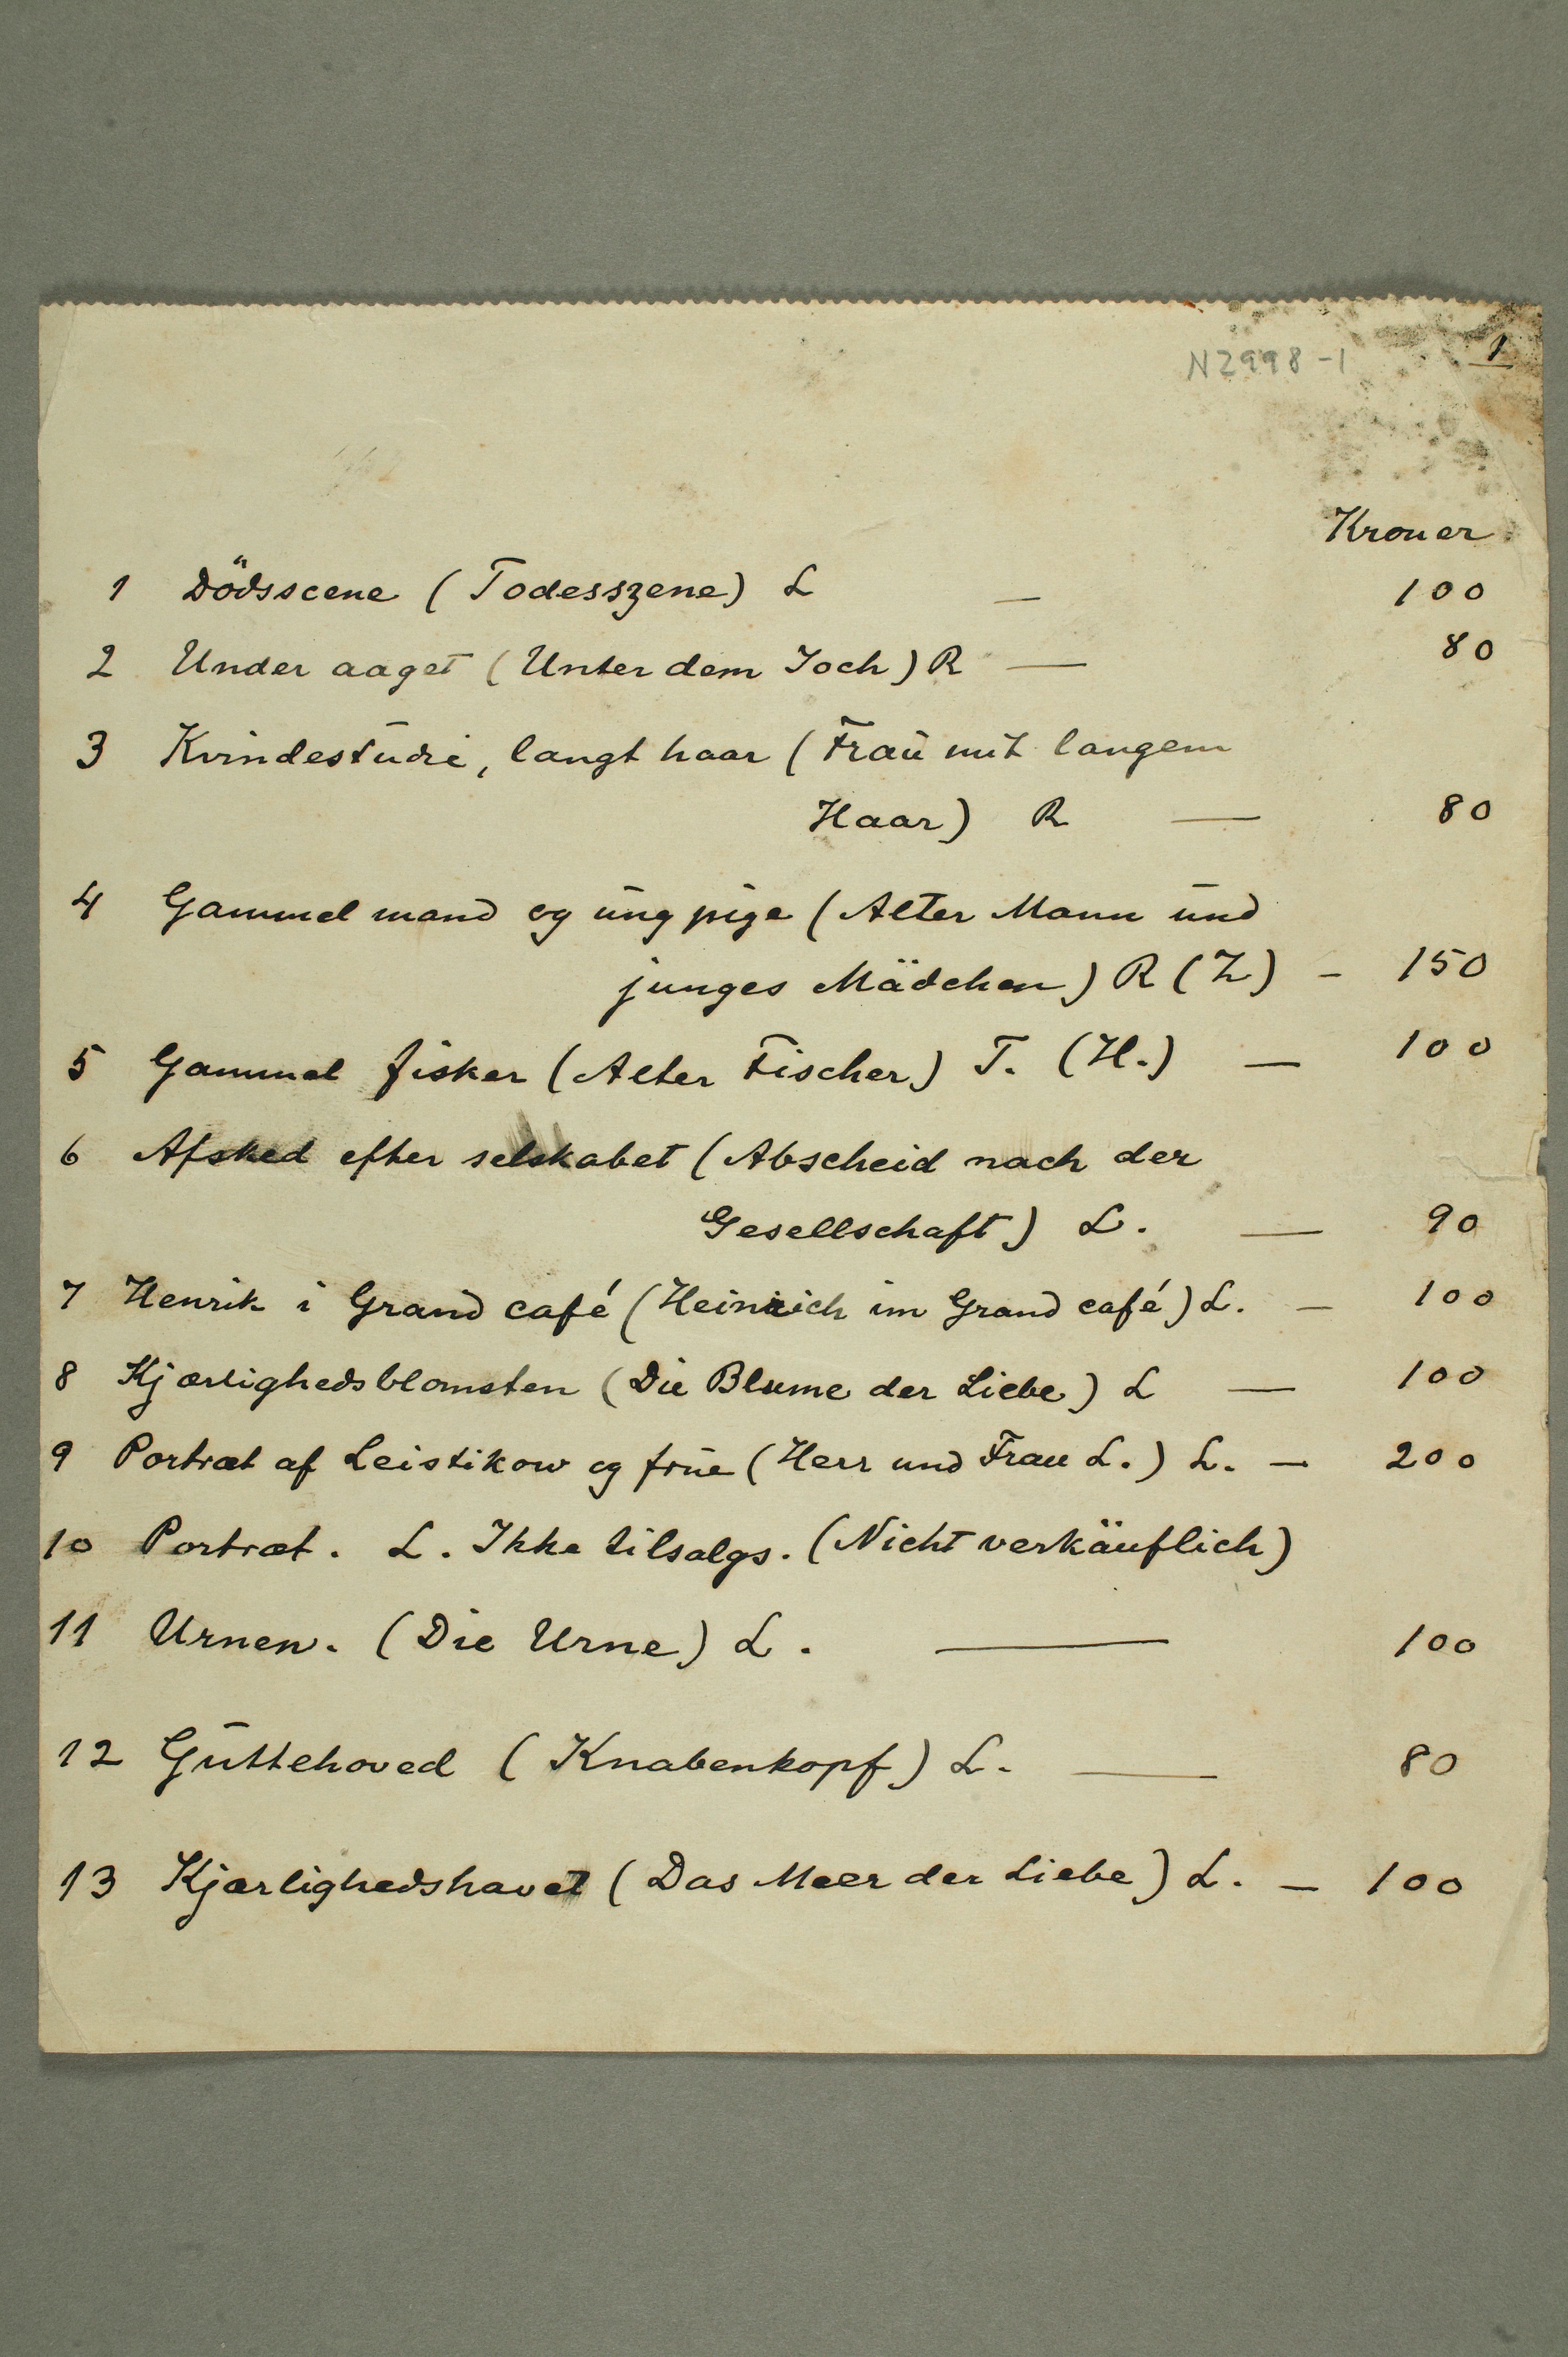 N 2998-1
1
Kroner
1 Dödsscene (Todesszene) L — 100
2 Under aaget (Unter dem Joch) R — 80
3 Kvindestūdie, langt haar (Fraū mit langem
Haar) R — 80
4 Gammel mand og ūng pige (Alter Mann ūnd
junges Mädchen) R (Z) - 150
5 Gammel fisker (Alter Fischer) T. (H.) — 100
6 Afsked efter selskabet (Abscheid nach der
Gesellschaft) L. — 90
7 Henrik i Grand café (Heinrich im Grand café) L. — 100
8 Kjærlighedsblomsten (Die Blume der Liebe) L — 100
9 Portræt af Leistikow og frūe (Herr und Frau L.) L. — 200
10 Portræt. L. Ikke tilsalgs. (Nicht verkäuflich)
11 Urnen. (Die Urne) L. — 100
12 Gūttehoved (Knabenkopf) L. — 80
13 Kjærlighedshavet (Das Meer der Liebe) L. — 100